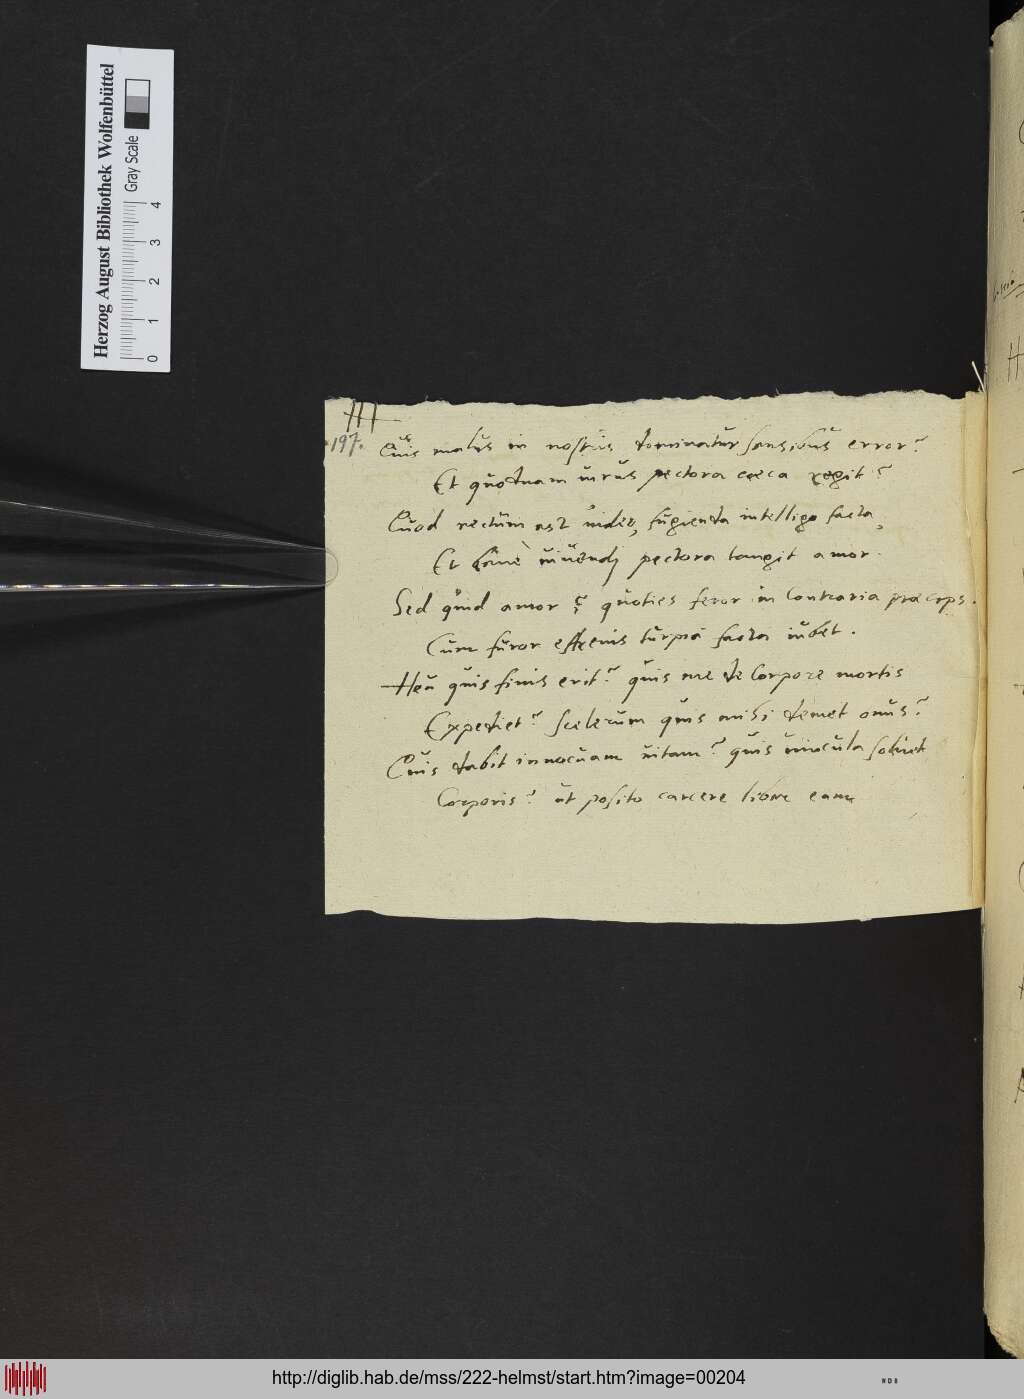 Herzog August Bibliothek Wolfenbüttel
Gray Scale
0 1 2 3 4
197.
Quis malus in nostris dominatur sensibus error?
Et quodnam uirus pectora cæca regit?
Quod rectum est uideo, fugienda intelligo facta,
Et benè uiuendj pectora tangit amor.
Sed quid amor? quoties feror in contraria præceps.
Cum furor effrenis turpia facta iubet.
Heu quis finis erit? quis me de corpore mortis
Expediet? scelerum quis mihi demet onus?
Quis dabit innocuam uitam? quis uincula soluet
Corporis? ut posito carcere liber eam
http://diglib.hab.de/mss/222-helmst/start.htm?image=00204